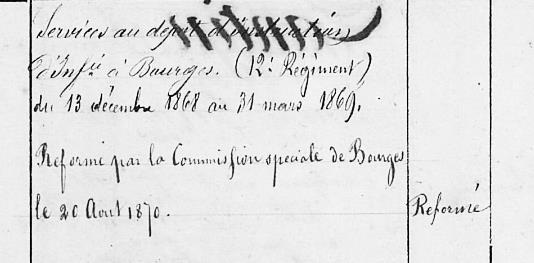 Services au dépot d'instruction
d'Infie à Bourges. (12e Régiment)
du 13 décembre 1868 au 31 mars 1869.
Réformé par la Commission spéciale de Bourges
le 20 Aout 1870.
Réformé